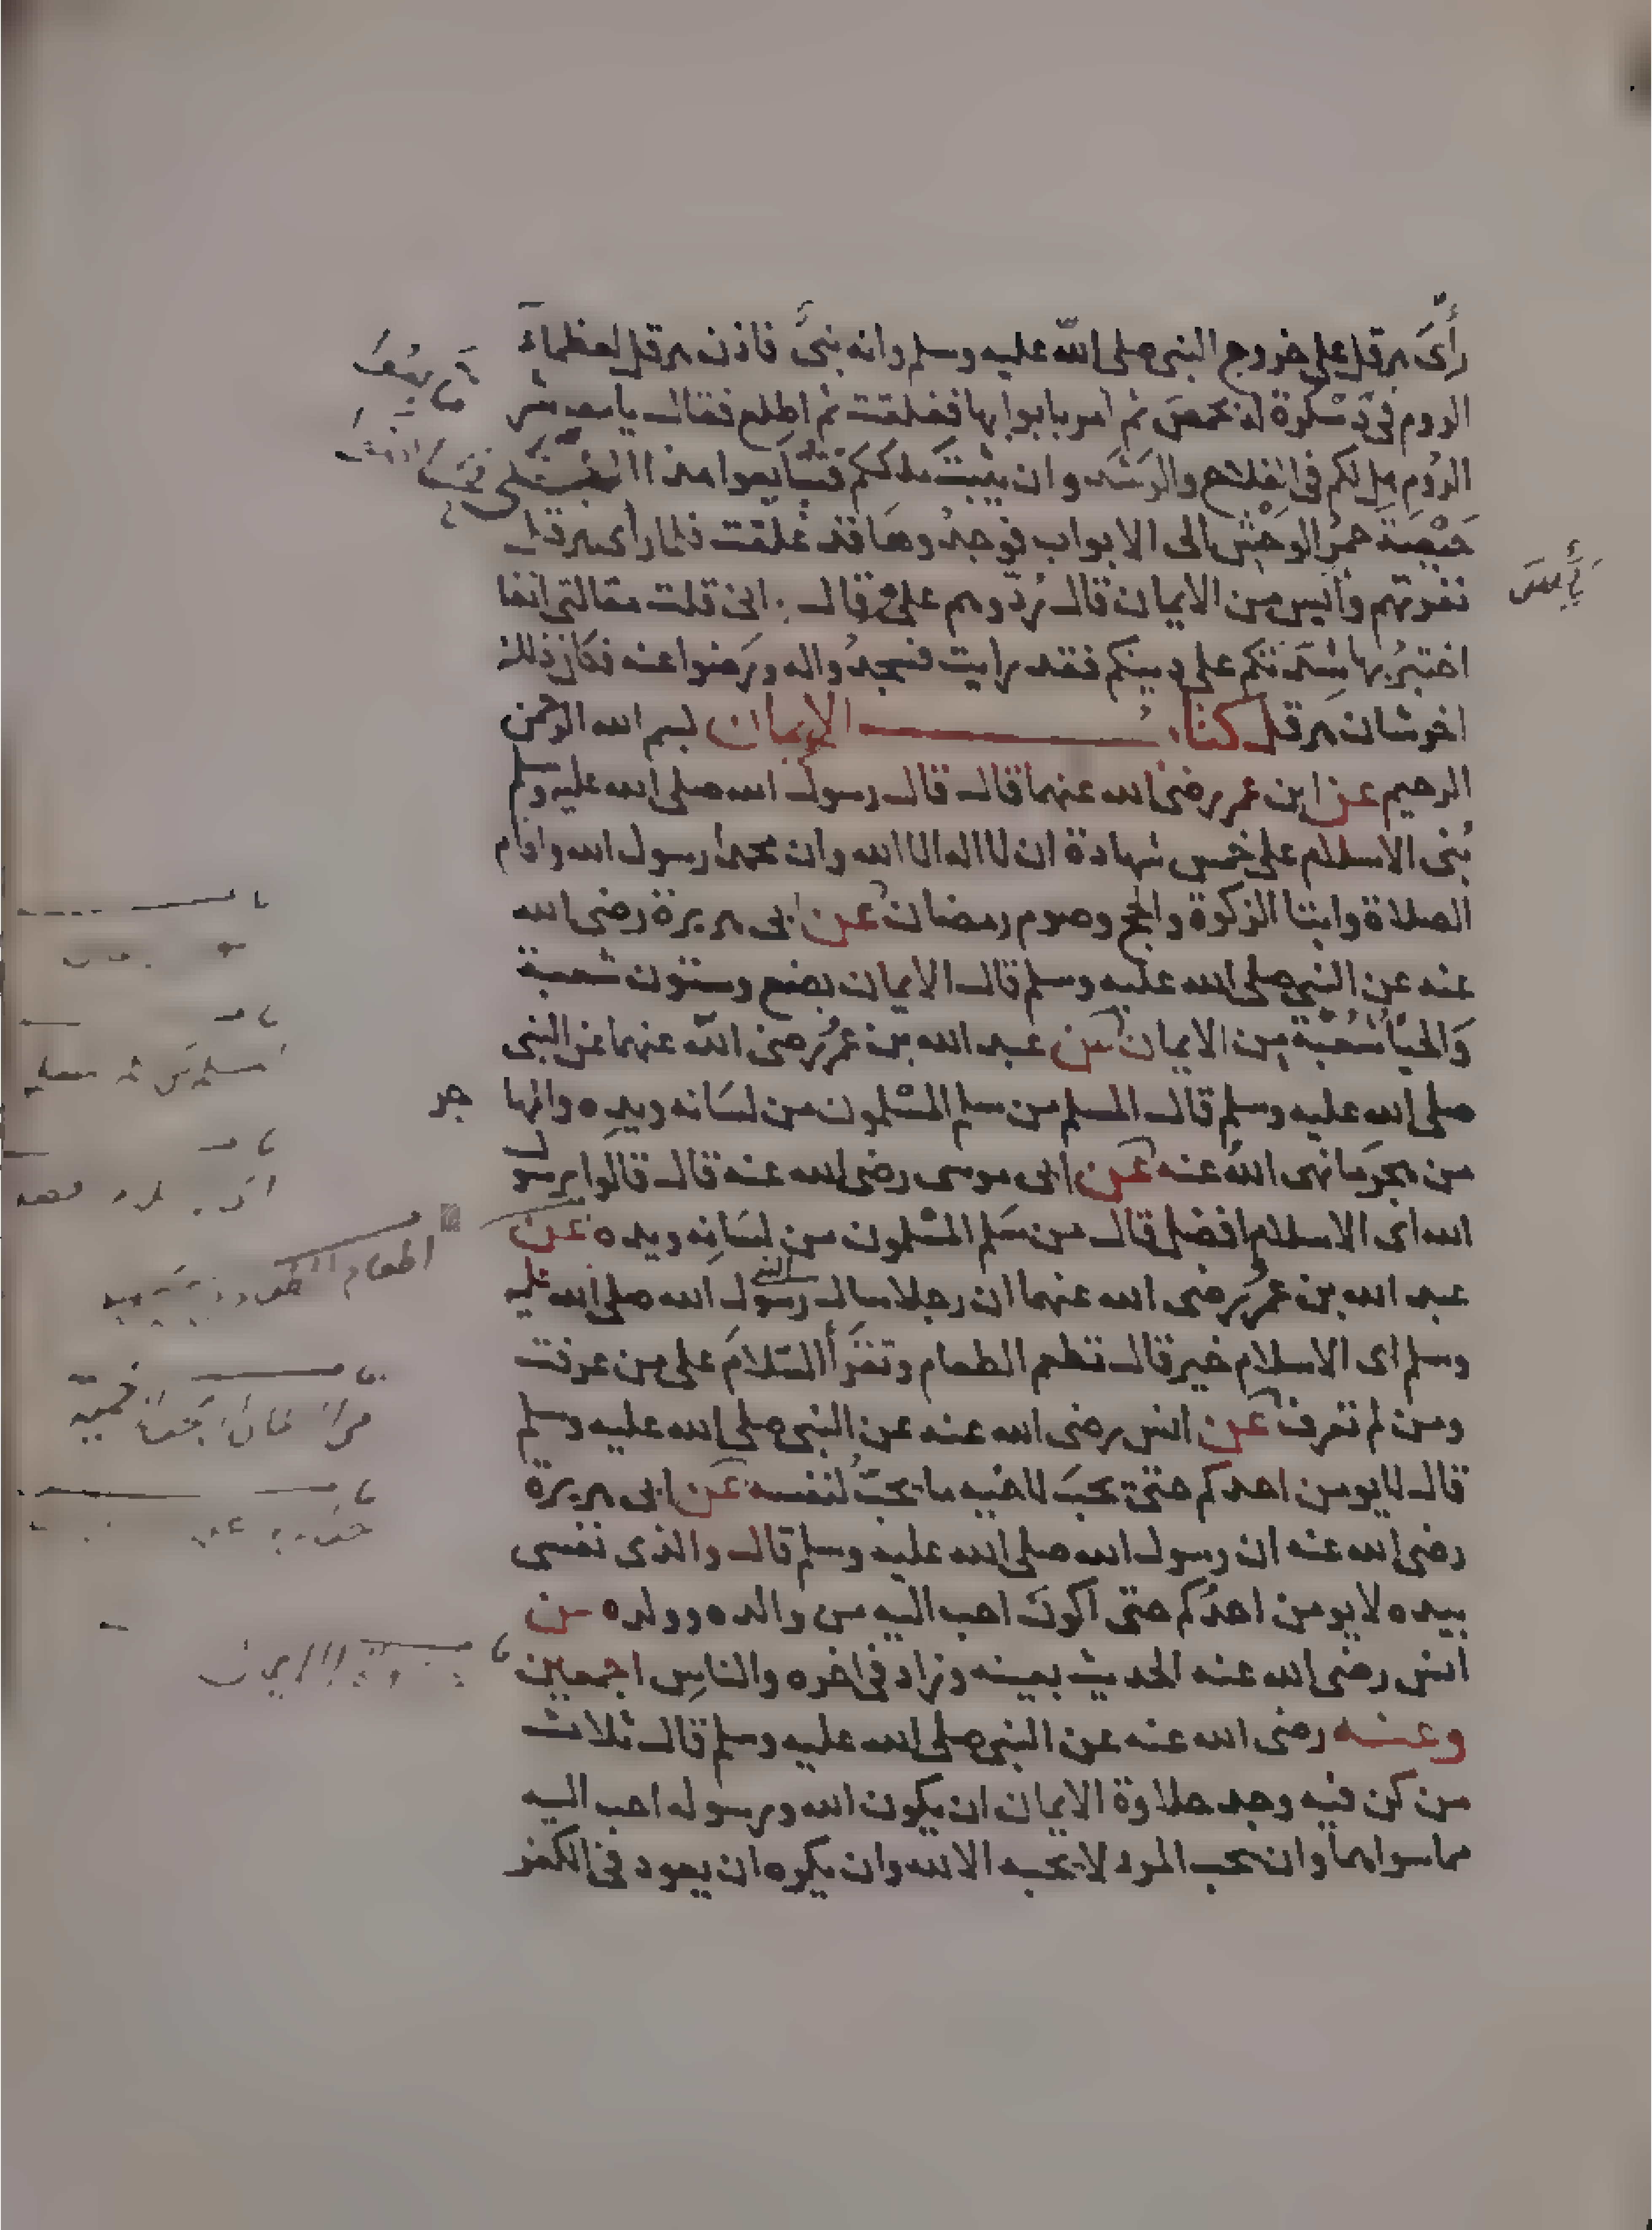 رأى هرقل على خروج النبي صلى الله عليه وسلم وانه نبيّ فاذن هرقل لعظماء
الروم في دسكرة له بحمص ثم امر بابوابها فغلقت ثم اطلع فقال يا معشر
الروم هل لكم في الفلاح والرشد وان يثبت ملككم فتبايعوا هذا النبي
حيصة حمر الوحش الى الابواب فوجدوها قد غلقت فلما رأى هرقل
نفرتهم وأيس من الايمان قال ردوهم علي وقال اني قلت مقالتي انفا
اختبر بها شدتكم على دينكم فقد رايت فسجدوا له ورضوا عنه فكان ذلك
اخر شان هرقل كتاب الإيمان بسم الله الرحمن
الرحيم عن ابن عمر رضى الله عنهما قال قال رسول الله صلى الله عليه وسلم
بُنى الاسلام على خمس شهادة ان لا اله الا الله وان محمدا رسول الله واقام
الصلاة وايتا الزكوة والحج وصوم رمضان عن ابى هريرة رضى الله
عنه عن النبي صلى الله عليه وسلم قال الايمان بضع وستون شعبة
وَالحيَا شُعبَة من الايمان عن عبد الله بن عمر رضى الله عنهما عن النبى
صلى الله عليه وسلم قال المسلم من سلم المسْلمون من لسَانه ويده والمها
جر
من هجر مَا نهى اللهُ عنه عن ابى موسى رضى الله عنه قال قالوا يرسول
الله اى الاسلام افضل قال من سَلم المسْلمون من لسَانِه ويده عن
عبد الله بن عمر رضى الله عنهما ان رجلا سال رسول الله صلى الله عليه
وسلم اى الاسلام خير قال تطعم الطعام وتقرَأ السّلامَ على من عرفت
ومن لم تعرف عن انس رضى الله عنه عن النبى صلى الله عليه وسلم
قال لا يومن احدكم حتى يحبّ لاخيه ما يحبّ لنفسه عن ابى هريرة
رضى الله عنه ان رسول الله صلى الله عليه وسلم قال والذى نفسى
بيده لا يومن احدكم حتى اكونَ احب اليه من والده وولده عن
انس رضى الله عنه الحديث بعينه وزاد فى اخره والناسِ اجمعين
وعنه رضى الله عنه عن النبى صلى الله عليه وسلم قال ثلاث
من كن فيه وجد حلاوة الايمان ان يكون الله ورسوله احب اليه
مما سواهما وان يحب المرء لا يحبه الا لله وان يكره ان يعود في الكفر